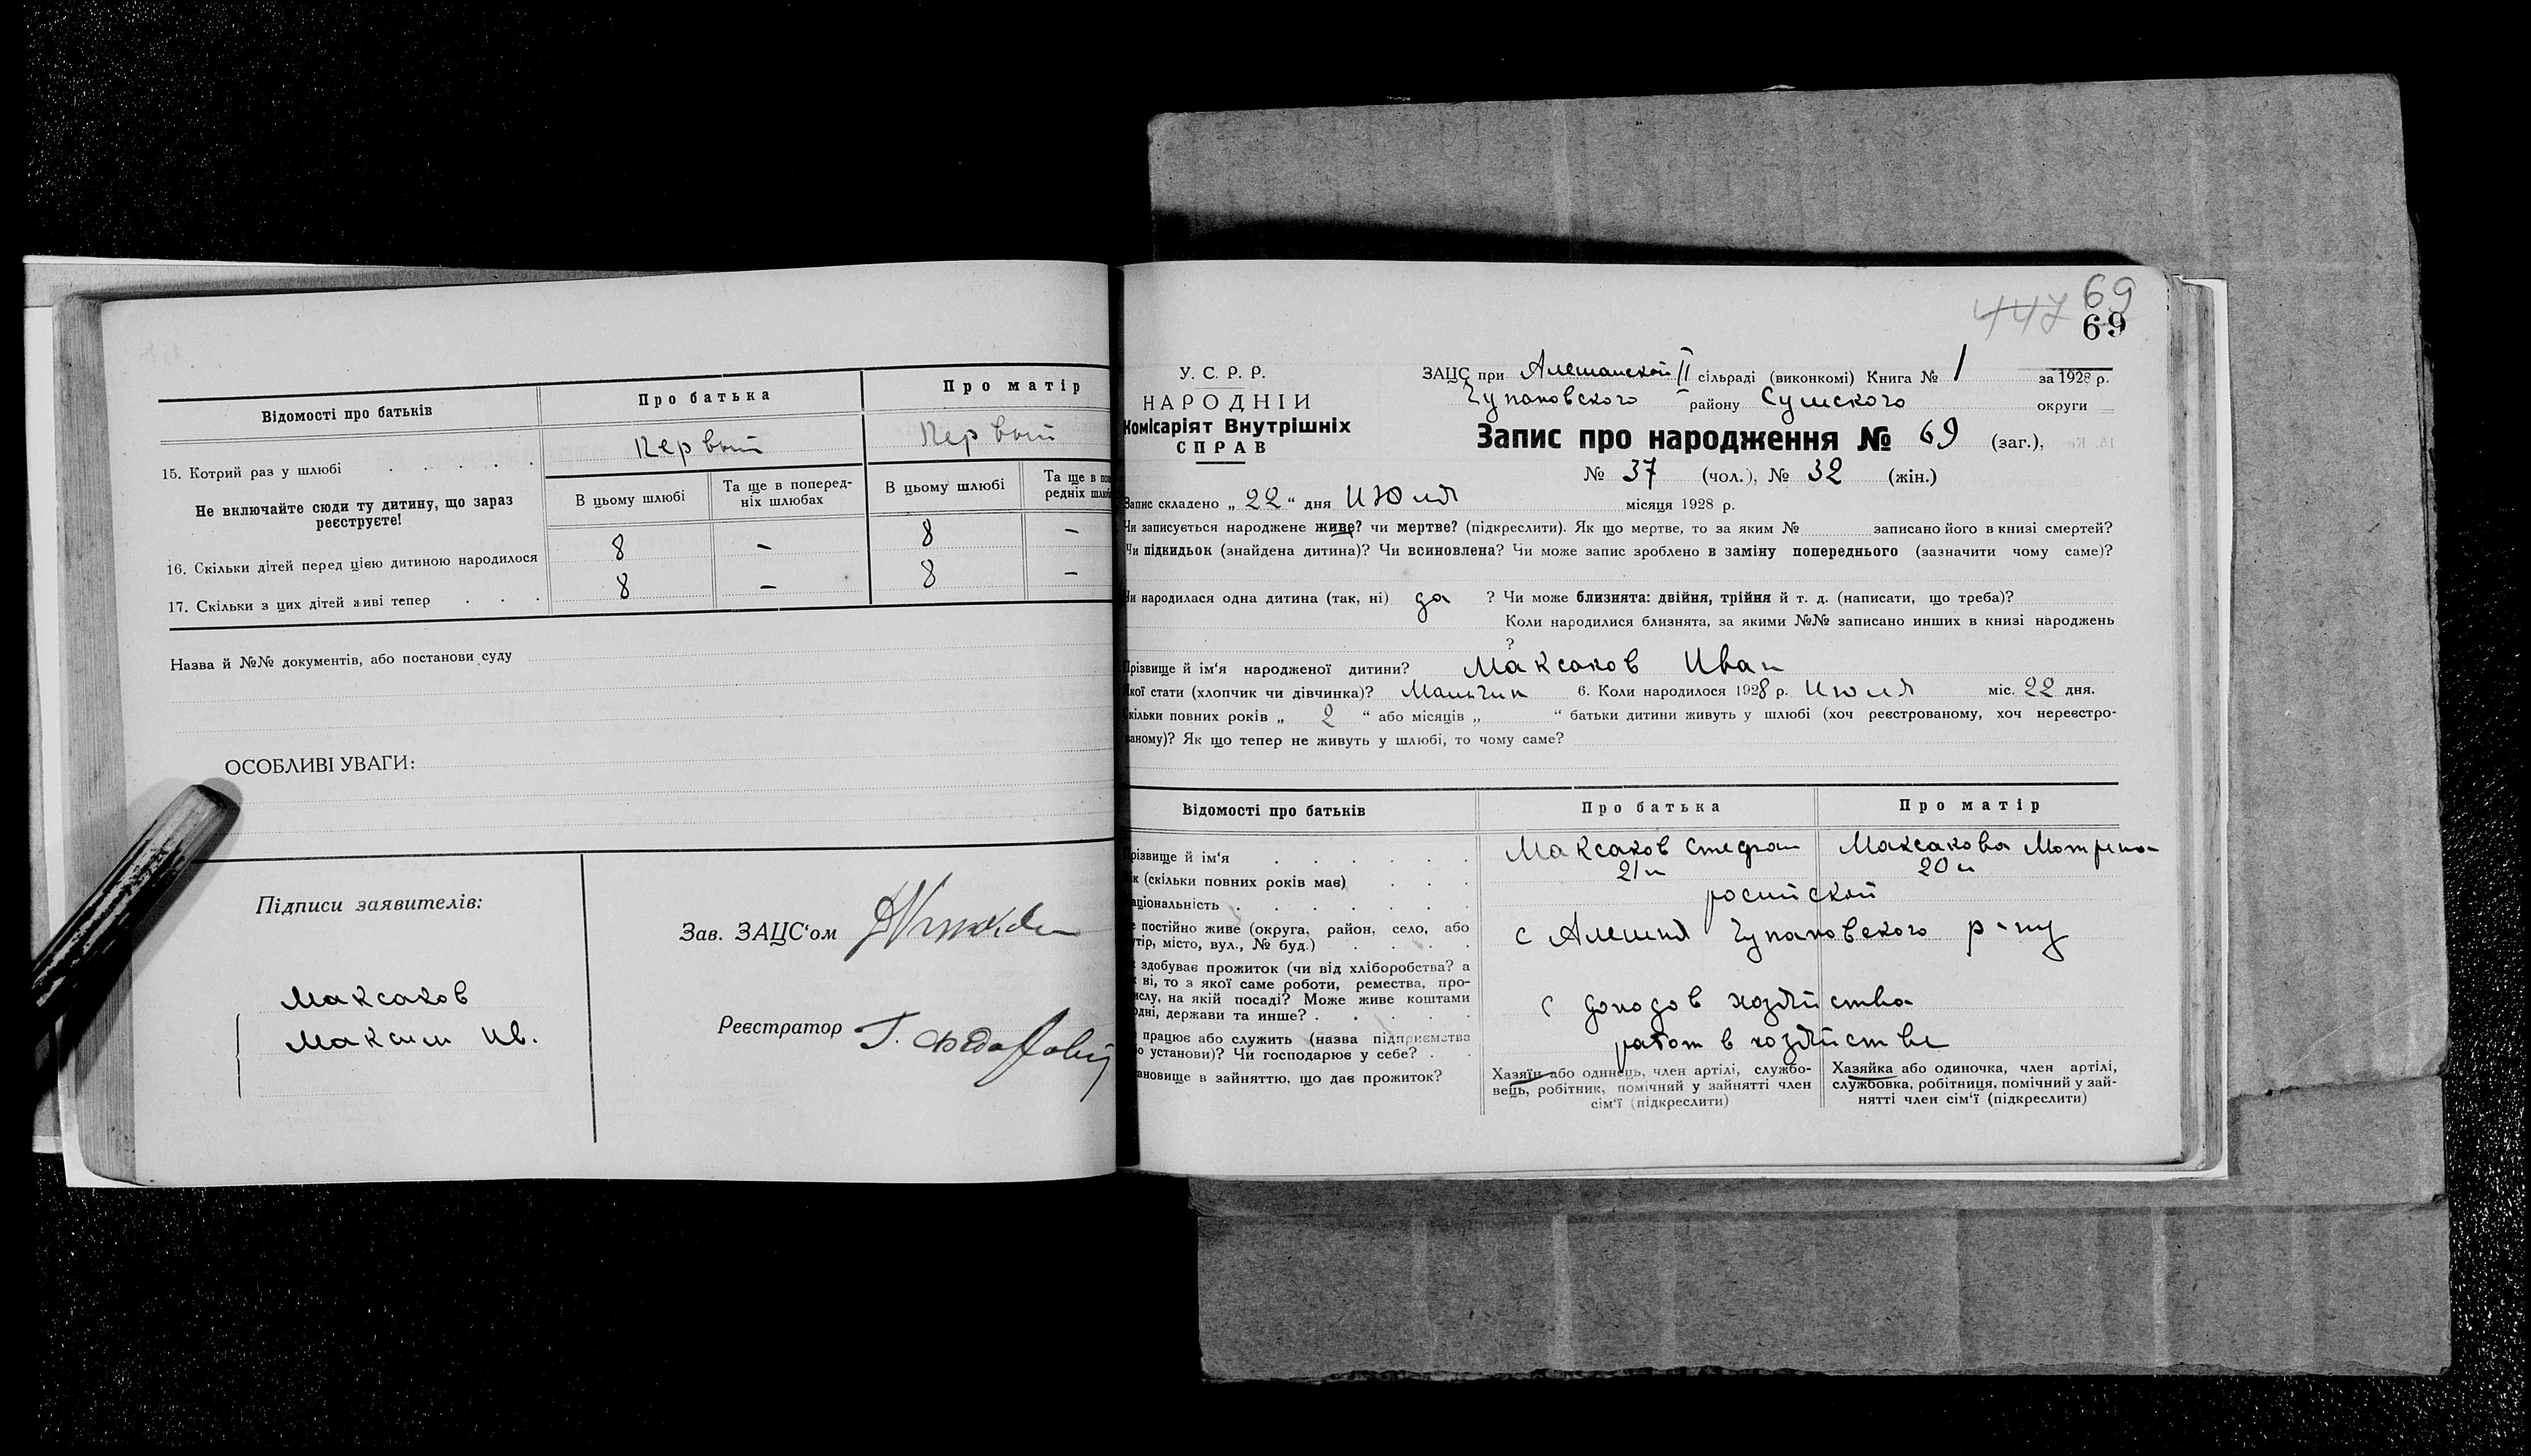 Відомості про батьків
Про батька
Про матір
15. Котрий раз у шлюбі . . . . .
Первый
Первый
Не включайте сюди ту дитину, що зараз реєструєте!
В цьому шлюбі
Та ще в поперед-
ніх шлюбах
В цьому шлюбі
Та ще в
редніх
16. Скільки дітей перед цією дитиною народилося
8
–
8
–
17. Скільки з цих дітей живі тепер . . .
8
–
8
–
Назва й №№ документів, або постанови суду
ОСОБЛИВІ УВАГИ:
Підписи заявителів:
Максаков
Максим Ив.
Зав. ЗАЦС'ом
Реєстратор Г.
447 69
69
У. С. Р. Р.
НАРОДНІЙ
Комісаріят Внутрішніх
СПРАВ
ЗАЦС при Алешанской II сільраді (виконкомі) Книга № 1 за 1928 р.
Чупаховского району Сумского округи
Запис про народження № 69 (заг.),
№ 37 (чол.), № 32 (жін.)
Запис складено „ 22 “ дня Июля місяця 1928 р.
Чи записується народжене живе? чи мертве? (підкреслити). Як що мертве, то за яким № записано його в книзі смертей?
Чи підкидьок (знайдена дитина)? Чи всиновлена? Чи може запис зроблено в заміну попереднього (зазначити чому саме)?
Чи народилася одна дитина (так, ні) да ? Чи може близнята: двійня, трійня й т. д. (написати, що треба)?
Коли народилися близнята, за якими №№ записано инших в книзі народжень
?
Прізвище й ім'я народженої дитини? Максаков Иван
Якої стати (хлопчик чи дівчинка)? Мальчик 6. Коли народилося 1928 р. Июля міс. 22 дня.
Скільки повних років „ 2 “ або місяців „ “ батьки дитини живуть у шлюбі (хоч реєстрованому, хоч нереєстро-
ваному)? Як що тепер не живуть у шлюбі, то чому саме?
Відомості про батьків
Про батька
Про матір
різвище й ім'я . . . . . .
Максаков Стефан
Максакова Мотрена
ік (скільки повних років має) . . .
21 л
20 л
аціональність . . . . . . .
росийской
постійно живе (округа, район, село, або
тір, місто, вул., № буд.) . . . .
с Алешня Чупаховского р-ну
здобуває прожиток (чи від хліборобства? а
ні, то з якої саме роботи, ремества, про-
ислу, на якій посаді? Може живе коштами
одні, держави та инше? . . . . .
с доходов хозяйства
працює або служить (назва підприємства
о установи)? Чи господарює у себе? . .
работ в хозяйстве
ановище в зайняттю, що дає прожиток?
Хазяїн або одинець, член артілі, службо-
вець, робітник, помічний у зайнятті член
сім'ї (підкреслити)
Хазяйка або одиночка, член артілі,
службовка, робітниця, помічний у зай-
нятті член сім'ї (підкреслити)